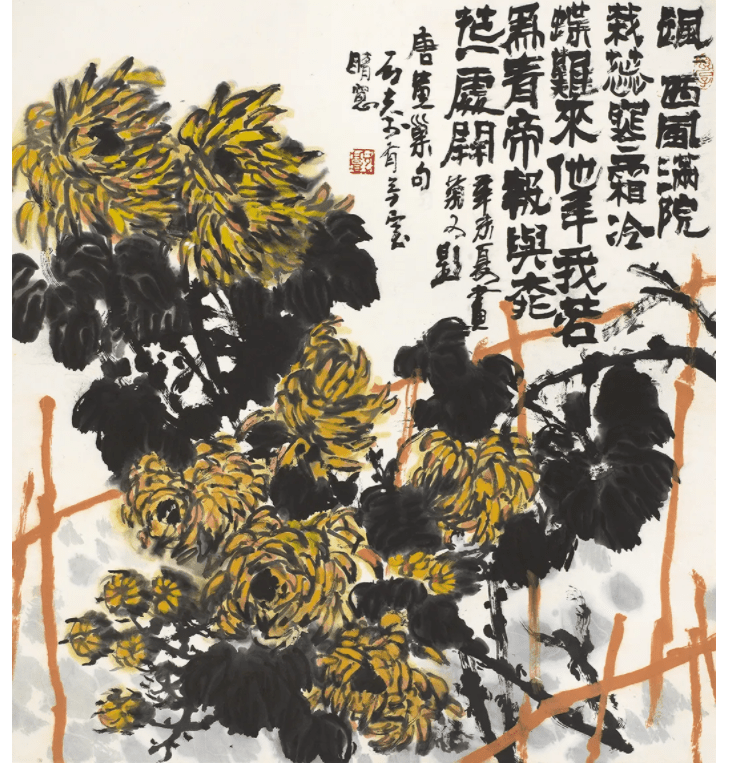 颯〻西風滿院
栽蕊寒霜冷
蝶難來他年我若
為青帝報與桃
花一處開 辛未夏畫
菊又題
唐黃巢句
晴窗